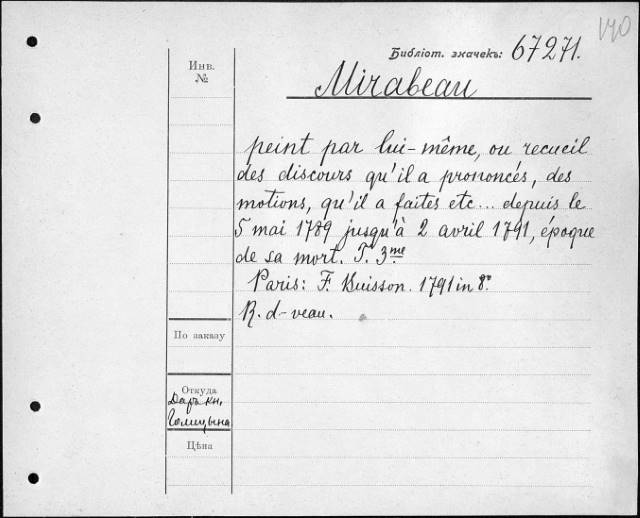 140
Библіот. значекъ: 67271.
Инв.
№
Mirabeau
peint par lui-même, ou recueil
des discours qu'il a prononcés, des
motions, qu'il a faites etc... depuis le
5 mai 1789 jusqu'à 2 avril 1791, époque
de sa mort. T. 3me
Paris: F. Buisson. 1791 in 8º
R. d-veau.
По заказу
Откуда
Даръ кн.
Голицына
Цѣна